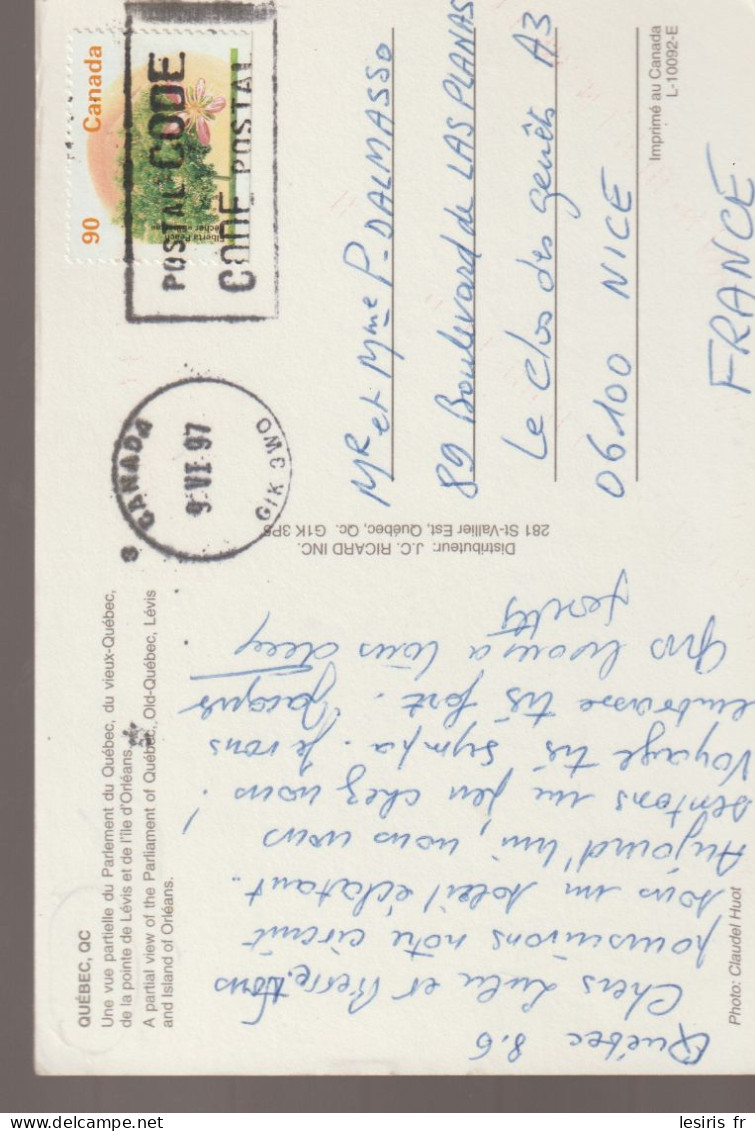 QUÉBEC, QC
Une vue partielle du Parlement du Québec, du vieux-Québec,
de la pointe de Lévis et de l'île d'Orléans.
A partial view of the Parliament of Québec, Old-Québec, Lévis
and Island of Orléans.
Québec 8.6
Chers Lulu et Pierre, Nous
poursuivons notre circuit
sous un soleil éclatant.
Aujourd'hui, nous nous
sentons un peu chez nous !
Voyage très sympa. Je vous
embrasse très fort. Jacques
Gros bisous à tous deux
Photo: Claudel Huot
Distributeur: J.C. RICARD INC.
281 St-Vallier Est, Québec, Qc. G1K 3P5
CANADA
9 VI 97
G1K 3W0
90 Canada
Elberta Peach
Pêcher
POSTAL CODE
CODE POSTAL
Mr et Mme P. DALMASSO
89 Boulevard de LAS PLANAS
Le Clos des genêts A3
06100 NICE
FRANCE
Imprimé au Canada
L-10092-E
lesiris fr